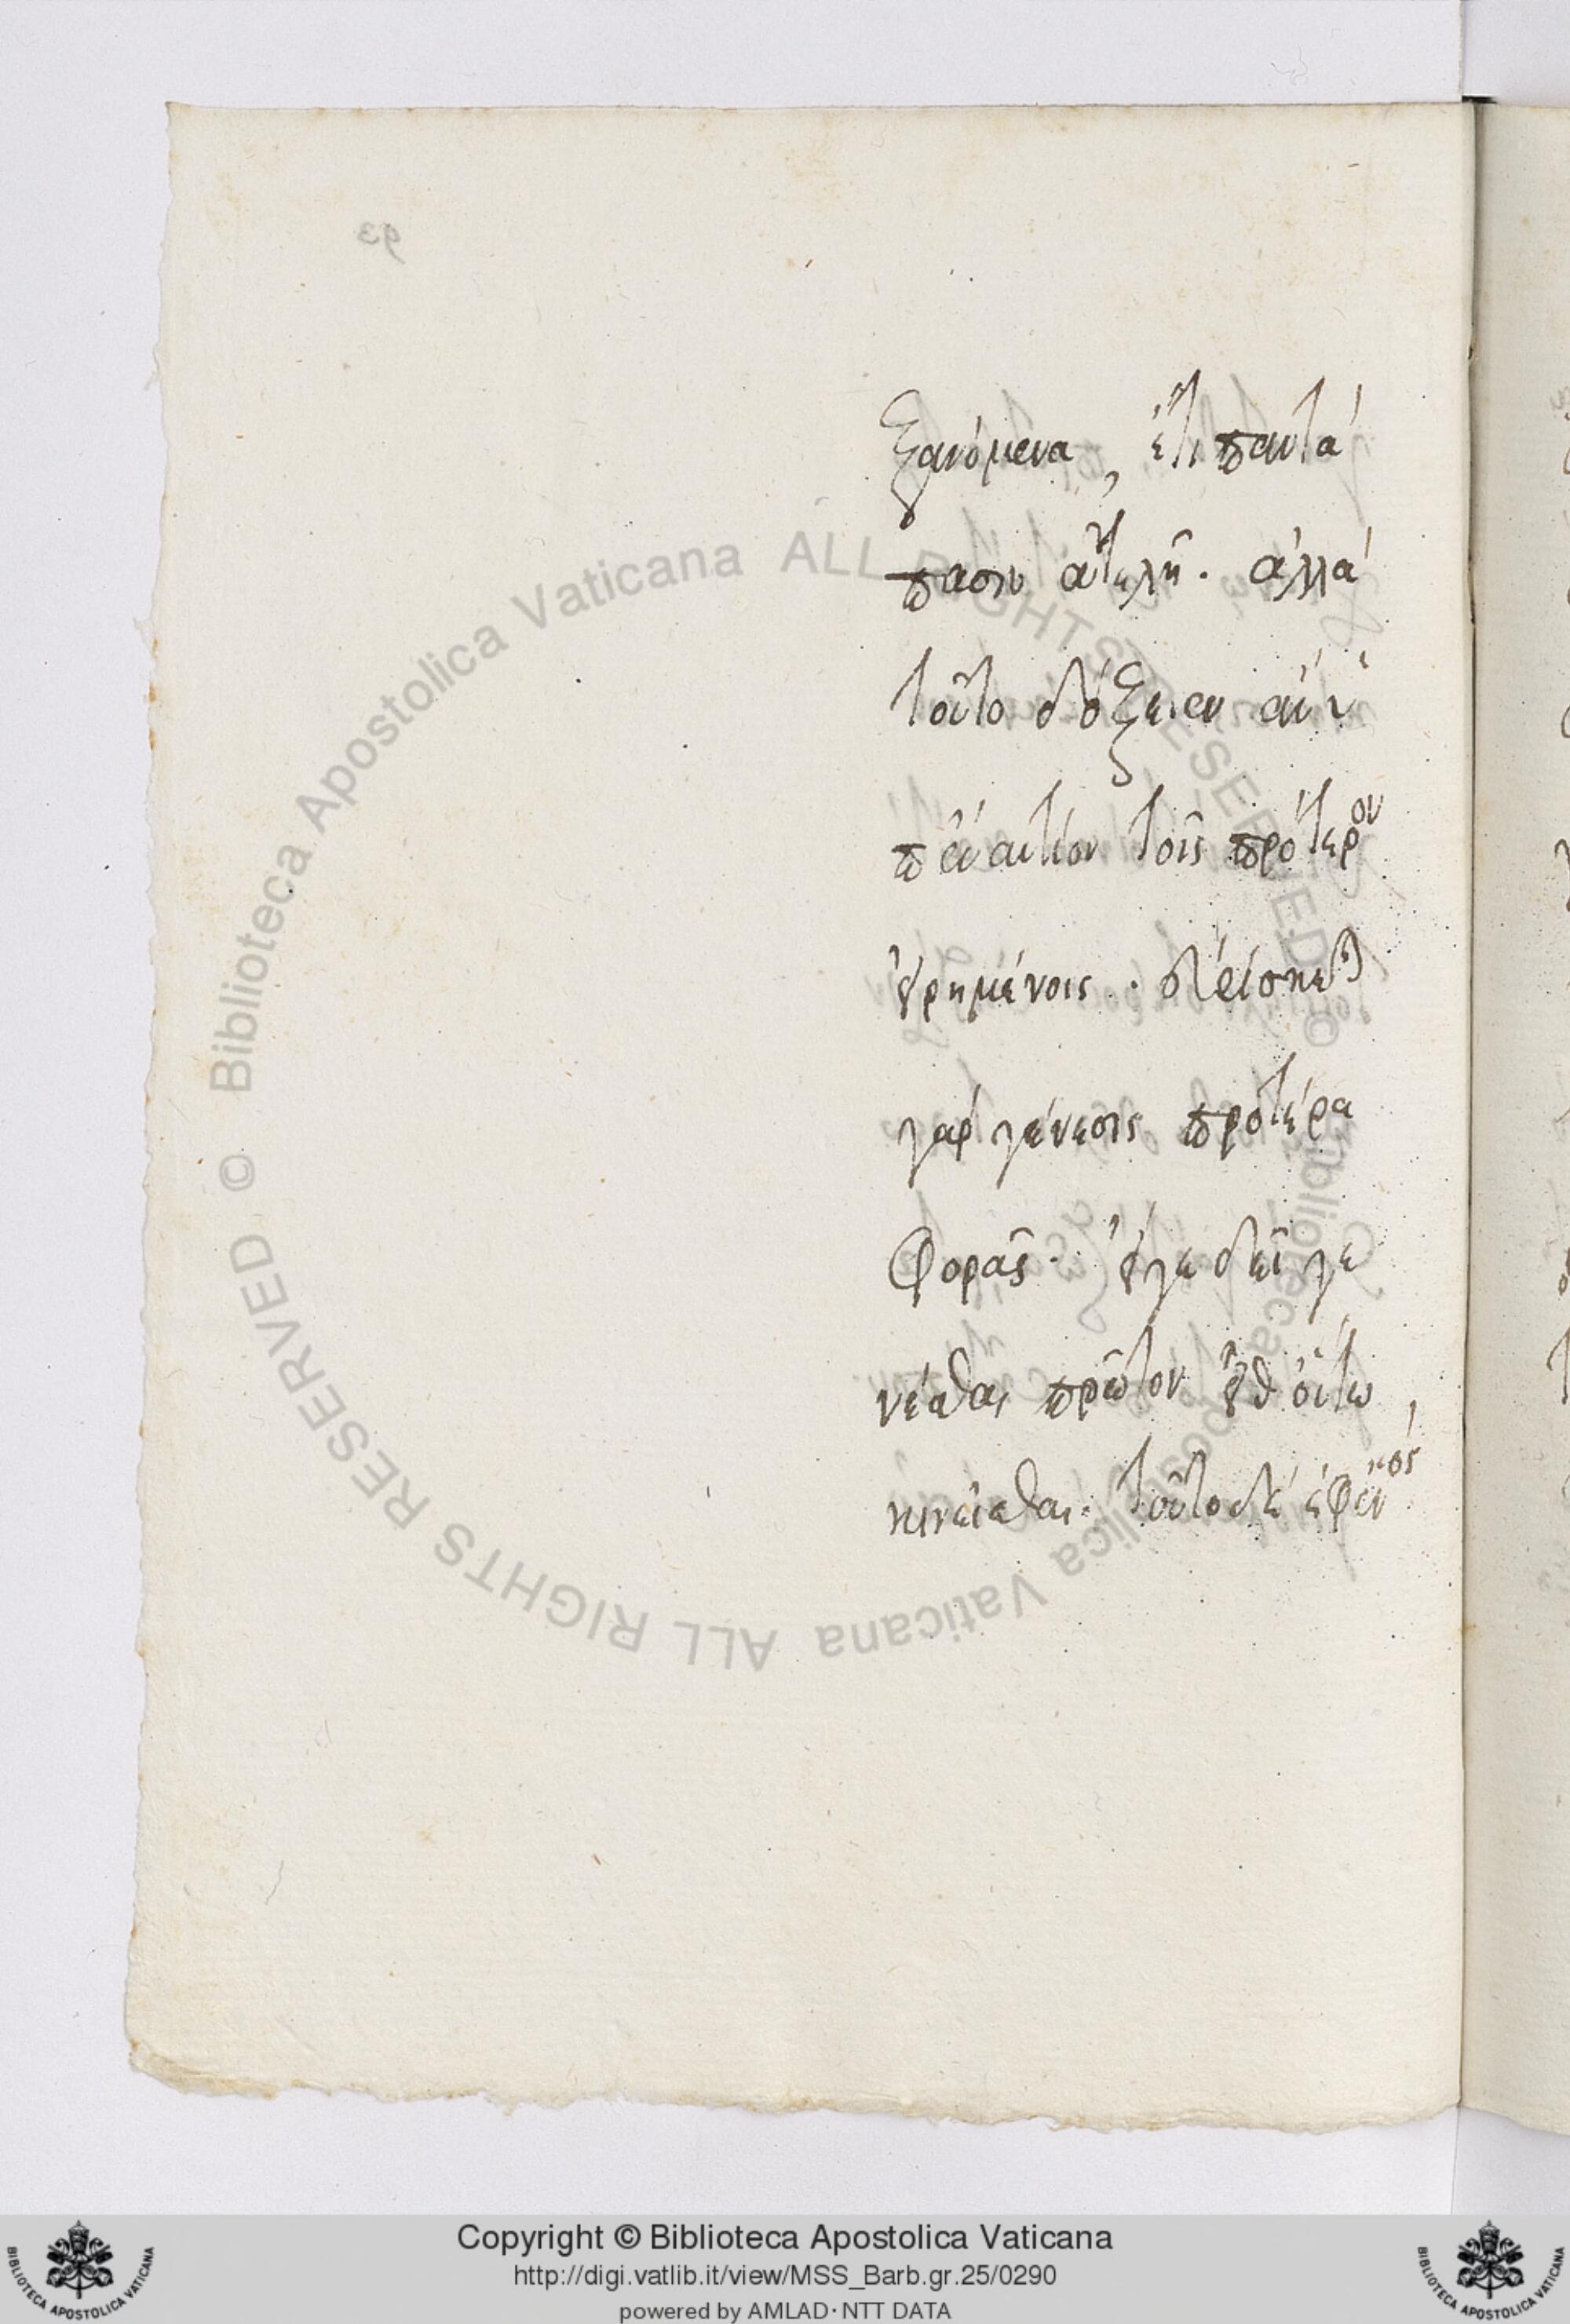 93
ξανόμενα, ἔτι παντά
πασιν ἀτελῆ. ἀλλὰ
τοῦτο δόξειεν ἂν ὑ
πεναντίον τοῖς πρότερον
εἰρημένοις. εὑρίσκεται
γὰρ γένεσις προτέρα
φορᾶς. εἴγε δεῖ γε
νέσθαι πρῶτον εἶθ' οὕτω,
κινεῖσθαι. τοῦτο δὲ ἐφ' ἑνὸς
© Biblioteca Apostolica Vaticana ALL RIGHTS RESERVED © Biblioteca Apostolica Vaticana ALL RIGHTS RESERVED
Copyright © Biblioteca Apostolica Vaticana
http://digi.vatlib.it/view/MSS_Barb.gr.25/0290
powered by AMLAD·NTT DATA
BIBLIOTECA APOSTOLICA VATICANA
BIBLIOTECA APOSTOLICA VATICANA